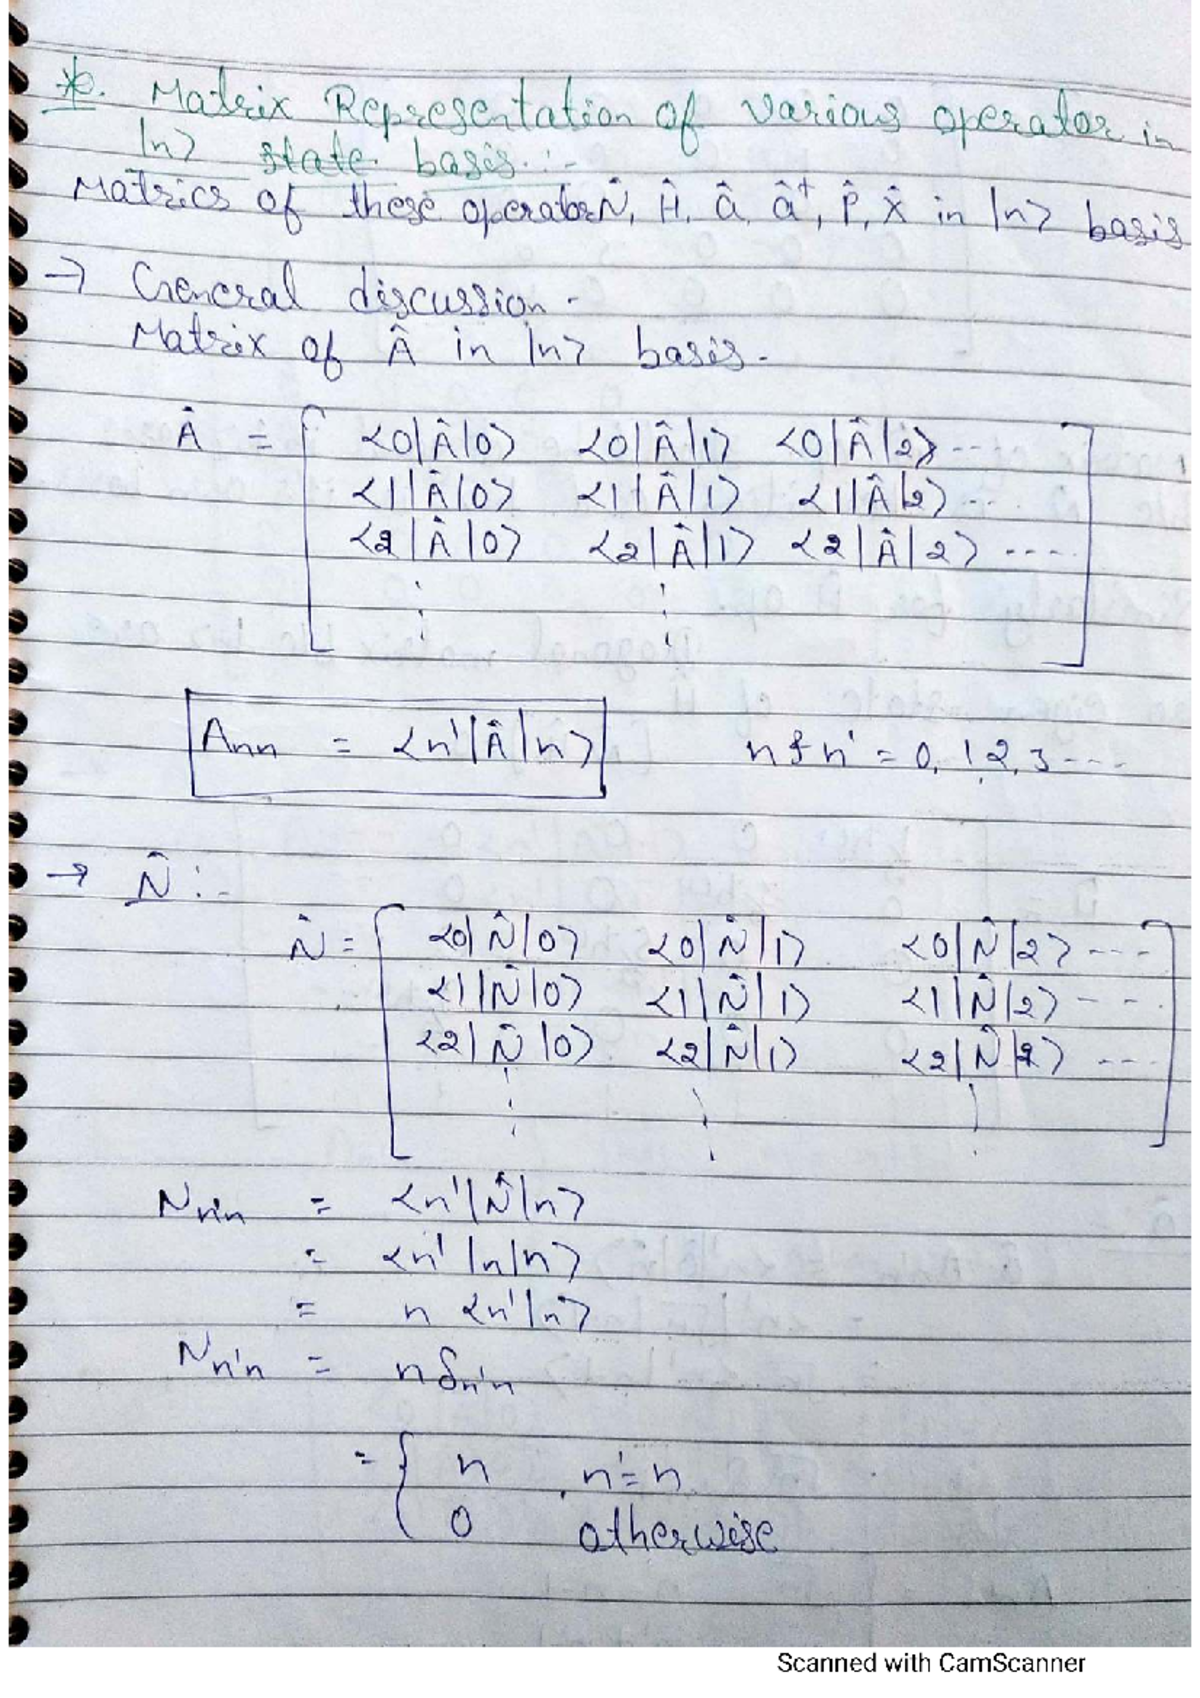 *. Matrix Representation of various operator in
|n> state basis :-
Matrics of these operator N̂, Ĥ, â, â†, P̂, X̂ in |n> basis
→ General discussion -
Matrix of Â in |n> basis -
Â = [ <0|Â|0> <0|Â|1> <0|Â|2> ---
<1|Â|0> <1|Â|1> <1|Â|2> --
<2|Â|0> <2|Â|1> <2|Â|2> ---- ]
Ann = <n'|Â|n> n & n' = 0, 1, 2, 3 ----
→ N̂ :-
N̂ = [ <0|N̂|0> <0|N̂|1> <0|N̂|2> ---
<1|N̂|0> <1|N̂|1> <1|N̂|2> ---
<2|N̂|0> <2|N̂|1> <2|N̂|2> --- ]
Nn'n = <n'|N̂|n>
= <n'|n|n>
= n <n'|n>
Nn'n = n δn'n
= { n , n' = n
0 otherwise
Scanned with CamScanner